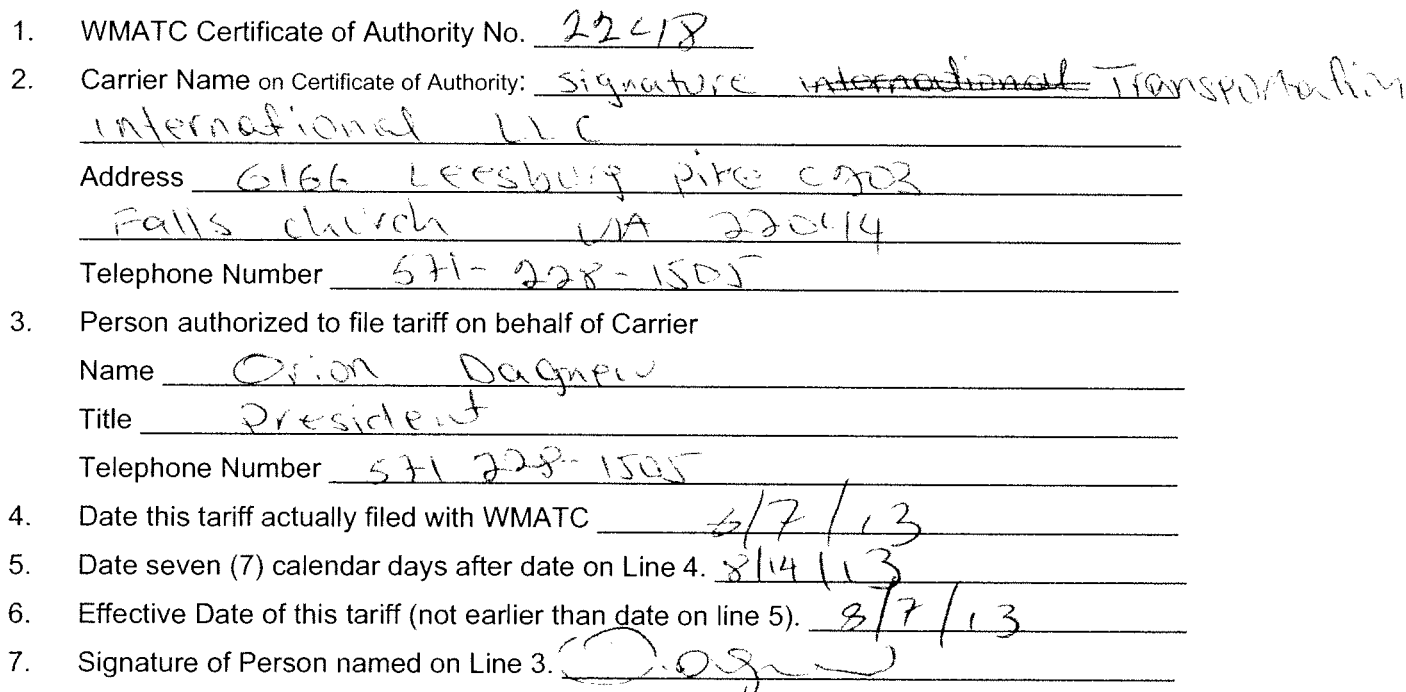 1. WMATC Certificate of Authority No. 22418
2. Carrier Name on Certificate of Authority: Signature international Transportation
international LLC
Address 6166 Leesburg pike
Falls church VA 22044
Telephone Number 571-228-1505
3. Person authorized to file tariff on behalf of Carrier
Name Orion Dagnew
Title President
Telephone Number 571 228-1505
4. Date this tariff actually filed with WMATC /7/13
5. Date seven (7) calendar days after date on Line 4. 8/14/13
6. Effective Date of this tariff (not earlier than date on line 5). 8/7/13
7. Signature of Person named on Line 3.